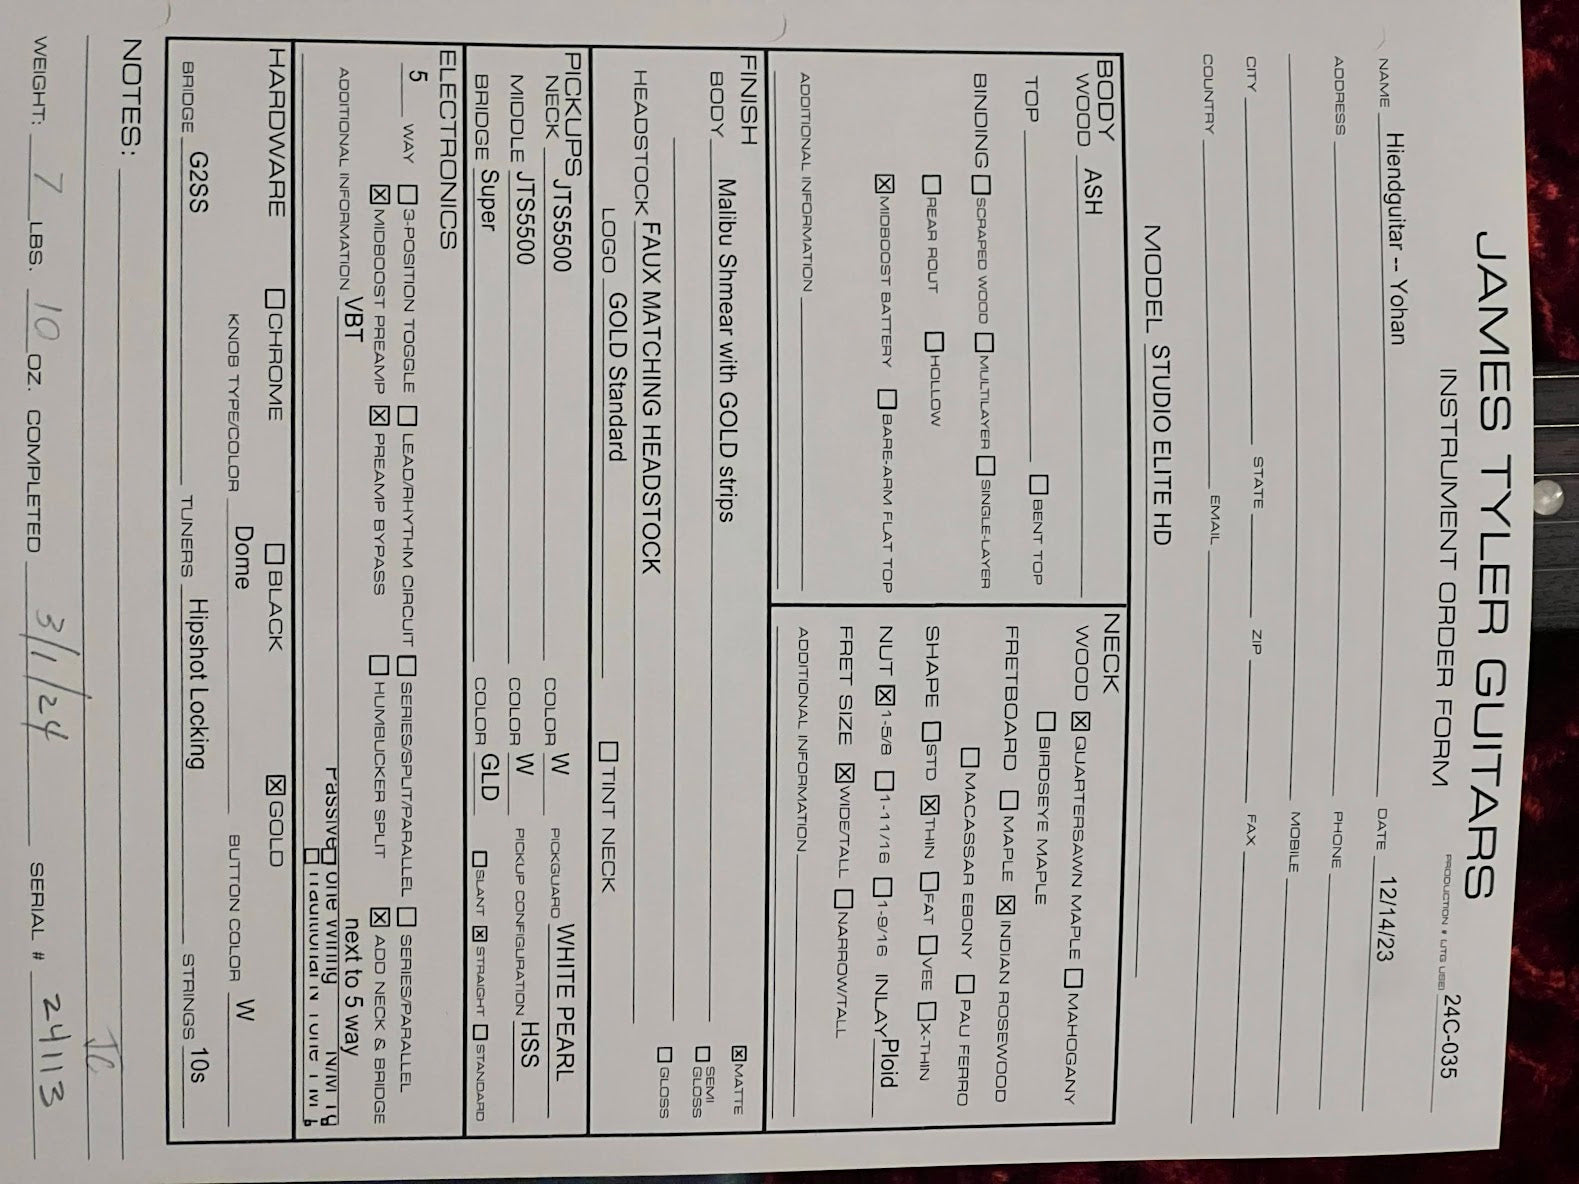 JAMES TYLER GUITARS
INSTRUMENT ORDER FORM
PRODUCTION # (JTG USE) 24C-035
NAME Hiendguitar -- Yohan DATE 12/14/23
ADDRESS PHONE
MOBILE
CITY STATE ZIP FAX
COUNTRY EMAIL
MODEL STUDIO ELITE HD
BODY
WOOD ASH
TOP ☐BENT TOP
BINDING ☐SCRAPED WOOD ☐MULTILAYER ☐SINGLE-LAYER
☐REAR ROUT ☐HOLLOW
☒MIDBOOST BATTERY ☐BARE-ARM FLAT TOP
ADDITIONAL INFORMATION
NECK
WOOD ☒QUARTERSAWN MAPLE ☐MAHOGANY
☐BIRDSEYE MAPLE
FRETBOARD ☐MAPLE ☒INDIAN ROSEWOOD
☐MACASSAR EBONY ☐PAU FERRO
SHAPE ☐STD ☒THIN ☐FAT ☐VEE ☐X-THIN
NUT ☒1-5/8 ☐1-11/16 ☐1-9/16 INLAY Ploid
FRET SIZE ☒WIDE/TALL ☐NARROW/TALL
ADDITIONAL INFORMATION
FINISH
BODY Malibu Shmear with GOLD strips ☒MATTE
☐SEMI GLOSS
HEADSTOCK FAUX MATCHING HEADSTOCK ☐GLOSS
LOGO GOLD Standard ☐TINT NECK
PICKUPS
NECK JTS5500 COLOR W PICKGUARD WHITE PEARL
MIDDLE JTS5500 COLOR W PICKUP CONFIGURATION HSS
BRIDGE Super COLOR GLD ☐SLANT ☒STRAIGHT ☐STANDARD
ELECTRONICS
5 WAY ☐3-POSITION TOGGLE ☐LEAD/RHYTHM CIRCUIT ☐SERIES/SPLIT/PARALLEL ☐SERIES/PARALLEL
☒MIDBOOST PREAMP ☒PREAMP BYPASS ☐HUMBUCKER SPLIT ☒ADD NECK & BRIDGE
ADDITIONAL INFORMATION VBT next to 5 way
Passive
HARDWARE ☐CHROME ☐BLACK ☒GOLD
KNOB TYPE/COLOR Dome BUTTON COLOR W
BRIDGE G2SS TUNERS Hipshot Locking STRINGS 10s
NOTES:
WEIGHT: 7 LBS. 10 OZ. COMPLETED 3/1/24 SERIAL # 24113